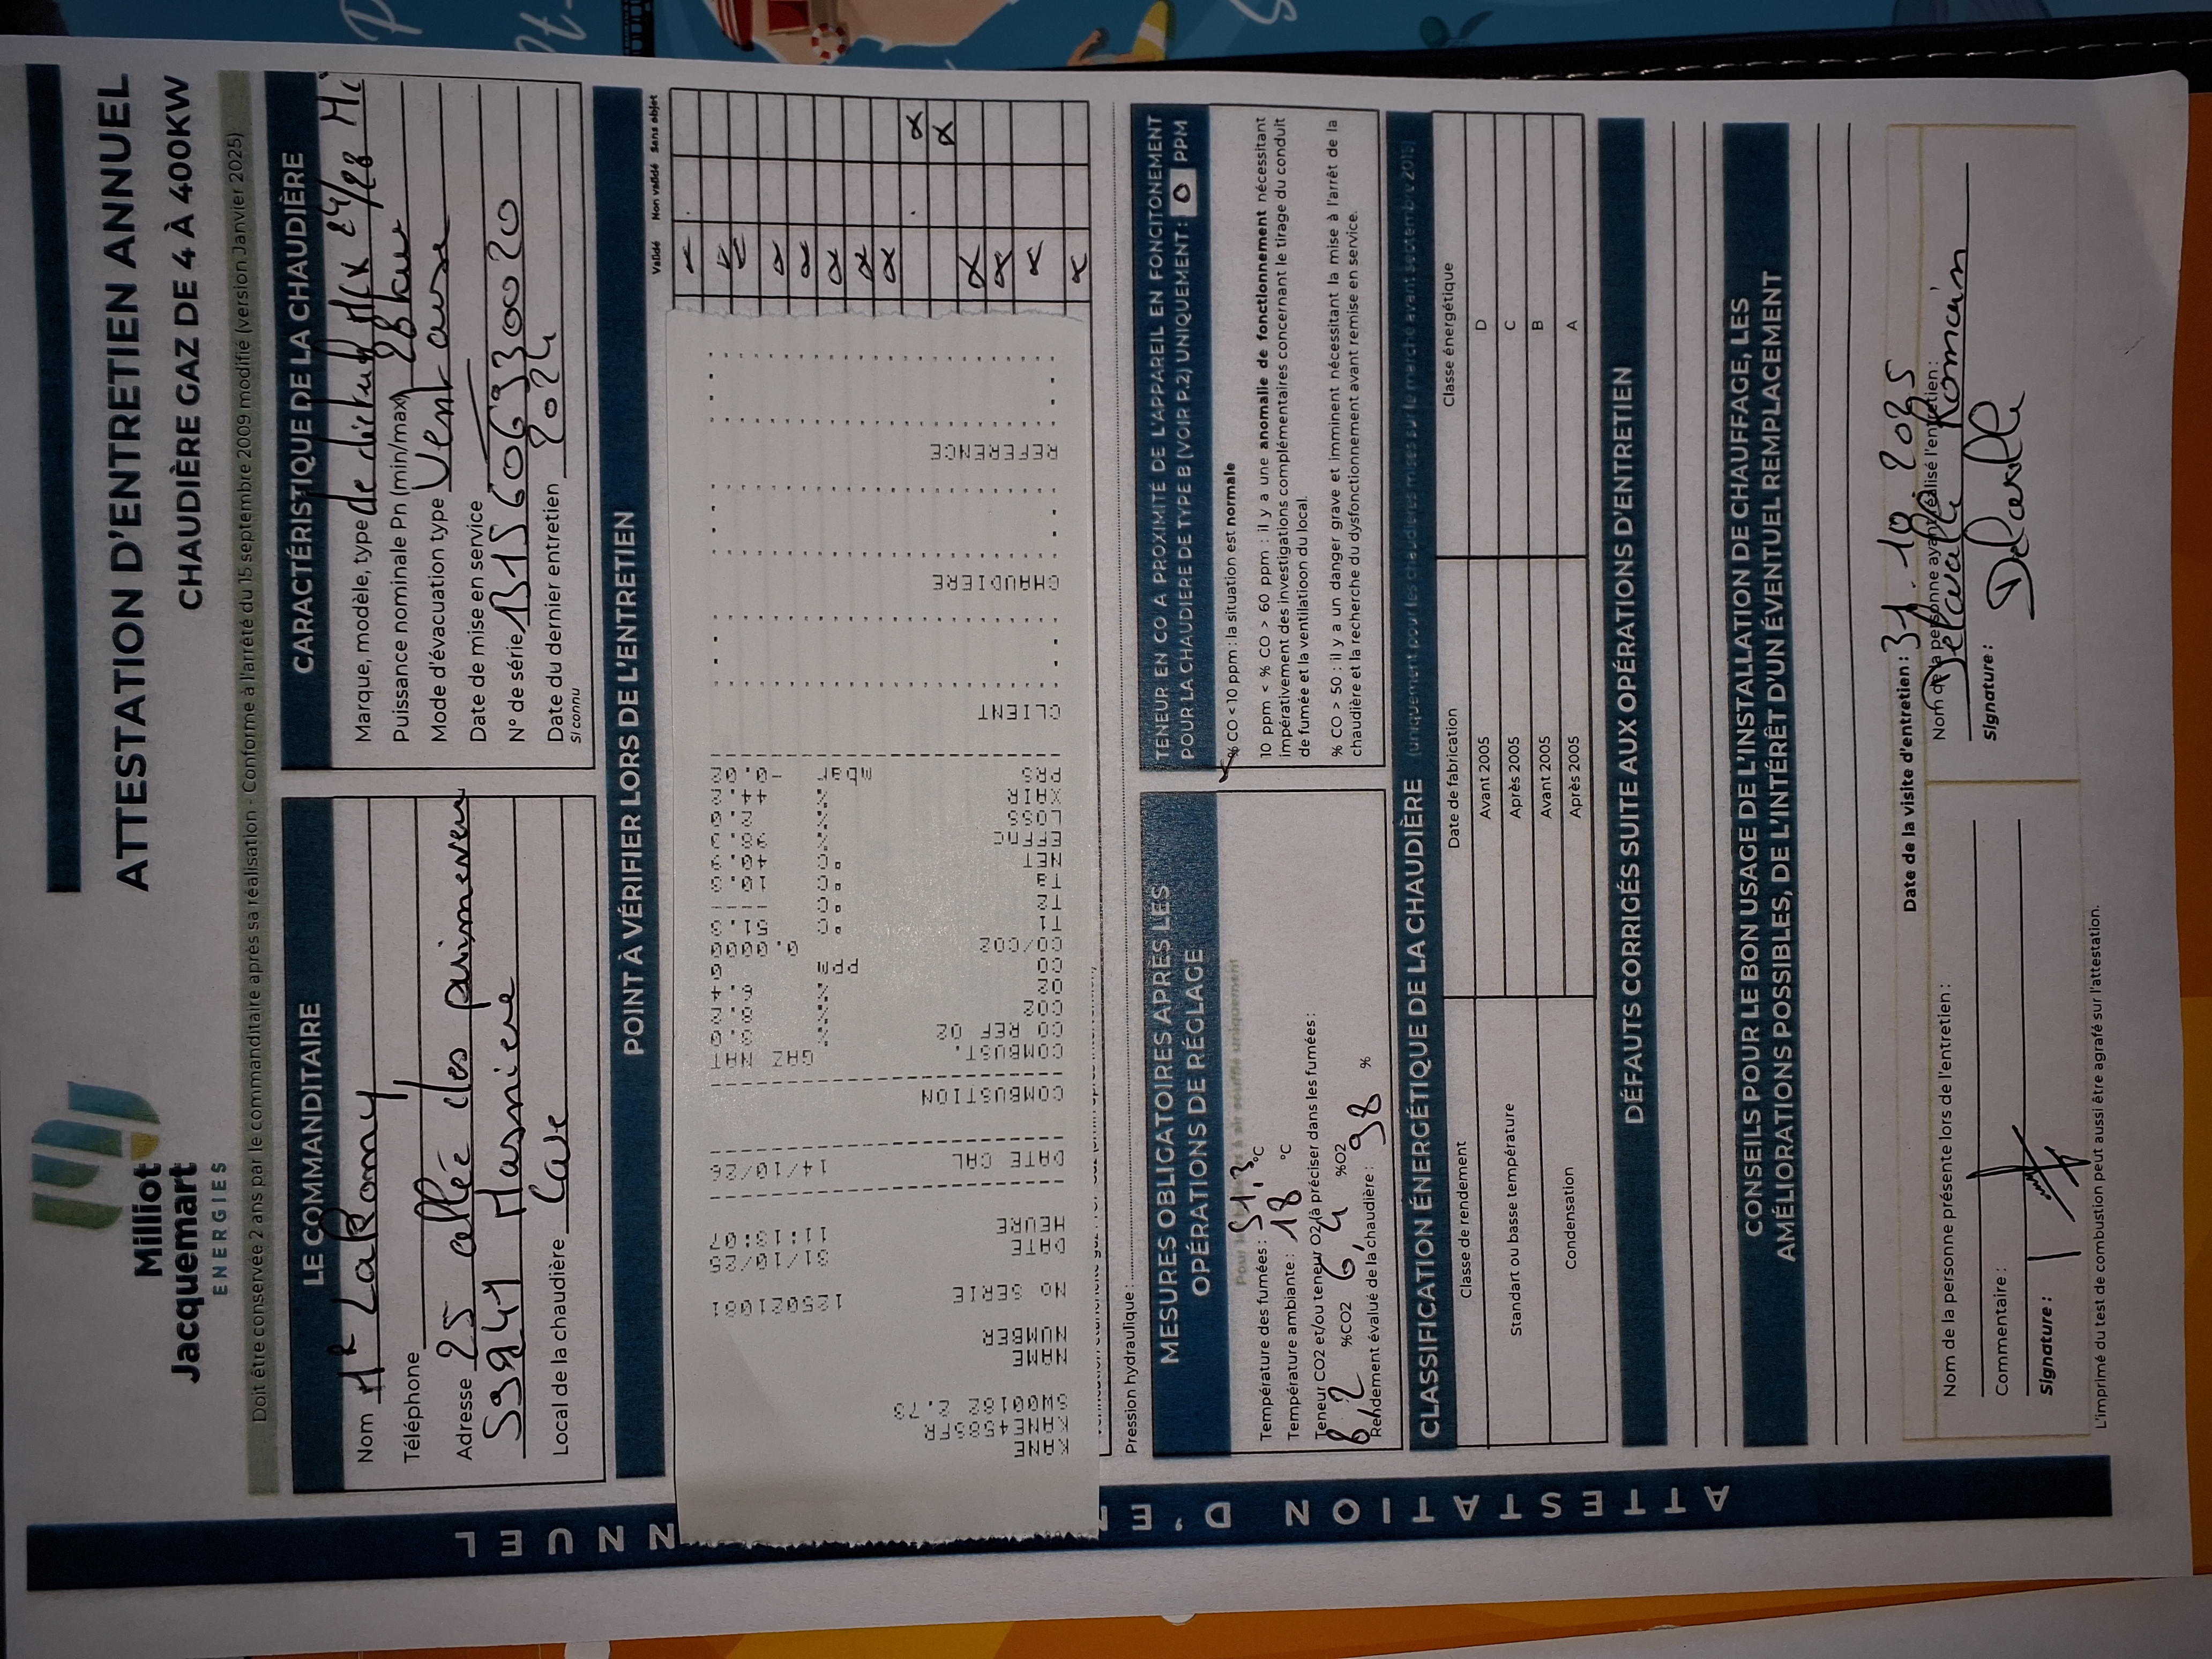 Milliot
Jacquemart
ENERGIES
ATTESTATION D'ENTRETIEN ANNUEL
CHAUDIÈRE GAZ DE 4 À 400KW
Doit être conservée 2 ans par le commanditaire après sa réalisation - Conforme à l'arrêté du 15 septembre 2009 modifié (version Janvier 2025)
LE COMMANDITAIRE
Nom Mr LaRomy
Téléphone
Adresse 25 allée des primeveres
59241 Masniere
Local de la chaudière Cave
CARACTÉRISTIQUE DE LA CHAUDIÈRE
Marque, modèle, type de dietrich MCX 24/28 Mi
Puissance nominale Pn (min/max) 28 kw
Mode d'évacuation type Ventouse
Date de mise en service
N° de série B156069300020
Date du dernier entretien 2024
Si connu
POINT À VÉRIFIER LORS DE L'ENTRETIEN
Validé Non validé Sans objet
KANE
KANE458SFR
SW00182 2.73
NAME
NUMBER
No SERIE 125021081
DATE 31/10/25
HEURE 11:13:07
DATE CAL 14/10/26
COMBUSTION
COMBUST. GAZ NAT
CO REF O2 %
CO2 %
O2 %
CO ppm
CO/CO2 0.0000
T1 °C 51.3
T2 °C ----
Ta °C
NET °C
EFFNC %
LOSS %
XAIR %
PRS mbar -0.02
CLIENT
CHAUDIERE
REFERENCE
Pression hydraulique :
MESURES OBLIGATOIRES APRÈS LES
OPÉRATIONS DE RÉGLAGE
Température des fumées : 51.3 °C
Température ambiante : 18 °C
Teneur CO2 et/ou teneur O2 (à préciser dans les fumées:
8,2 %CO2 6,4 %O2
Rendement évalué de la chaudière : 98 %
TENEUR EN CO A PROXIMITÉ DE L'APPAREIL EN FONCITONEMENT
POUR LA CHAUDIERE DE TYPE B (VOIR P.2) UNIQUEMENT: 0 PPM
% CO <10 ppm : la situation est normale
10 ppm < % CO > 60 ppm : il y a une anomalie de fonctionnement nécessitant
impérativement des investigations complémentaires concernant le tirage du conduit
de fumée et la ventilatioon du local.
% CO > 50 : il y a un danger grave et imminent nécessitant la mise à l'arrêt de la
chaudière et la recherche du dysfonctionnement avant remise en service.
CLASSIFICATION ÉNERGÉTIQUE DE LA CHAUDIÈRE (uniquement pour les chaudières mises sur le marché avant septembre 2015)
Classe de rendement Date de fabrication Classe énergétique
Standart ou basse température Avant 2005 D
Après 2005 C
Condensation Avant 2005 B
Après 2005 A
DÉFAUTS CORRIGÉS SUITE AUX OPÉRATIONS D'ENTRETIEN
CONSEILS POUR LE BON USAGE DE L'INSTALLATION DE CHAUFFAGE, LES
AMÉLIORATIONS POSSIBLES, DE L'INTÉRÊT D'UN ÉVENTUEL REMPLACEMENT
Date de la visite d'entretien : 31.10.2025
Nom de la personne présente lors de l'entretien :
Commentaire :
Signature :
Nom de la personne ayant réalisé l'entretien :
Romain
Signature :
L'imprimé du test de combustion peut aussi être agrafé sur l'attestation.
ATTESTATION D'E
NNUEL